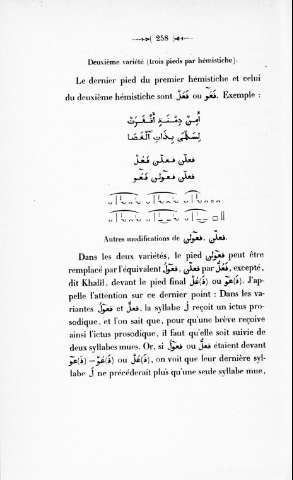 258
Deuxième variété (trois pieds par hémistiche).
Le dernier pied du premier hémistiche et celui
du deuxième hémistiche sont فَعُلْ ou فَعُو. Exemple :
أَمِنْ دِمْنَةٍ أَقْفَرَتْ
لِسَلْمَى بِذَاتِ ٱلْغَضَا
Autres modifications de فعولن, فعلن.
Dans les deux variétés, le pied فعولن peut être
remplacé par l'équivalent
par
excepté,
dit Khalil, devant le pied final
ou
J'ap-
pelle l'attention sur ce dernier point : Dans les va-
riantes
et
la syllabe
reçoit un ictus pro-
sodique, et l'on sait que, pour qu'une brève reçoive
ainsi l'ictus prosodique, il faut qu'elle soit suivie de
deux syllabes mues. Or, si
ou
étaient devant
ou
on voit que leur dernière syl-
labe
ne précéderait plus qu'une seule syllabe mue,